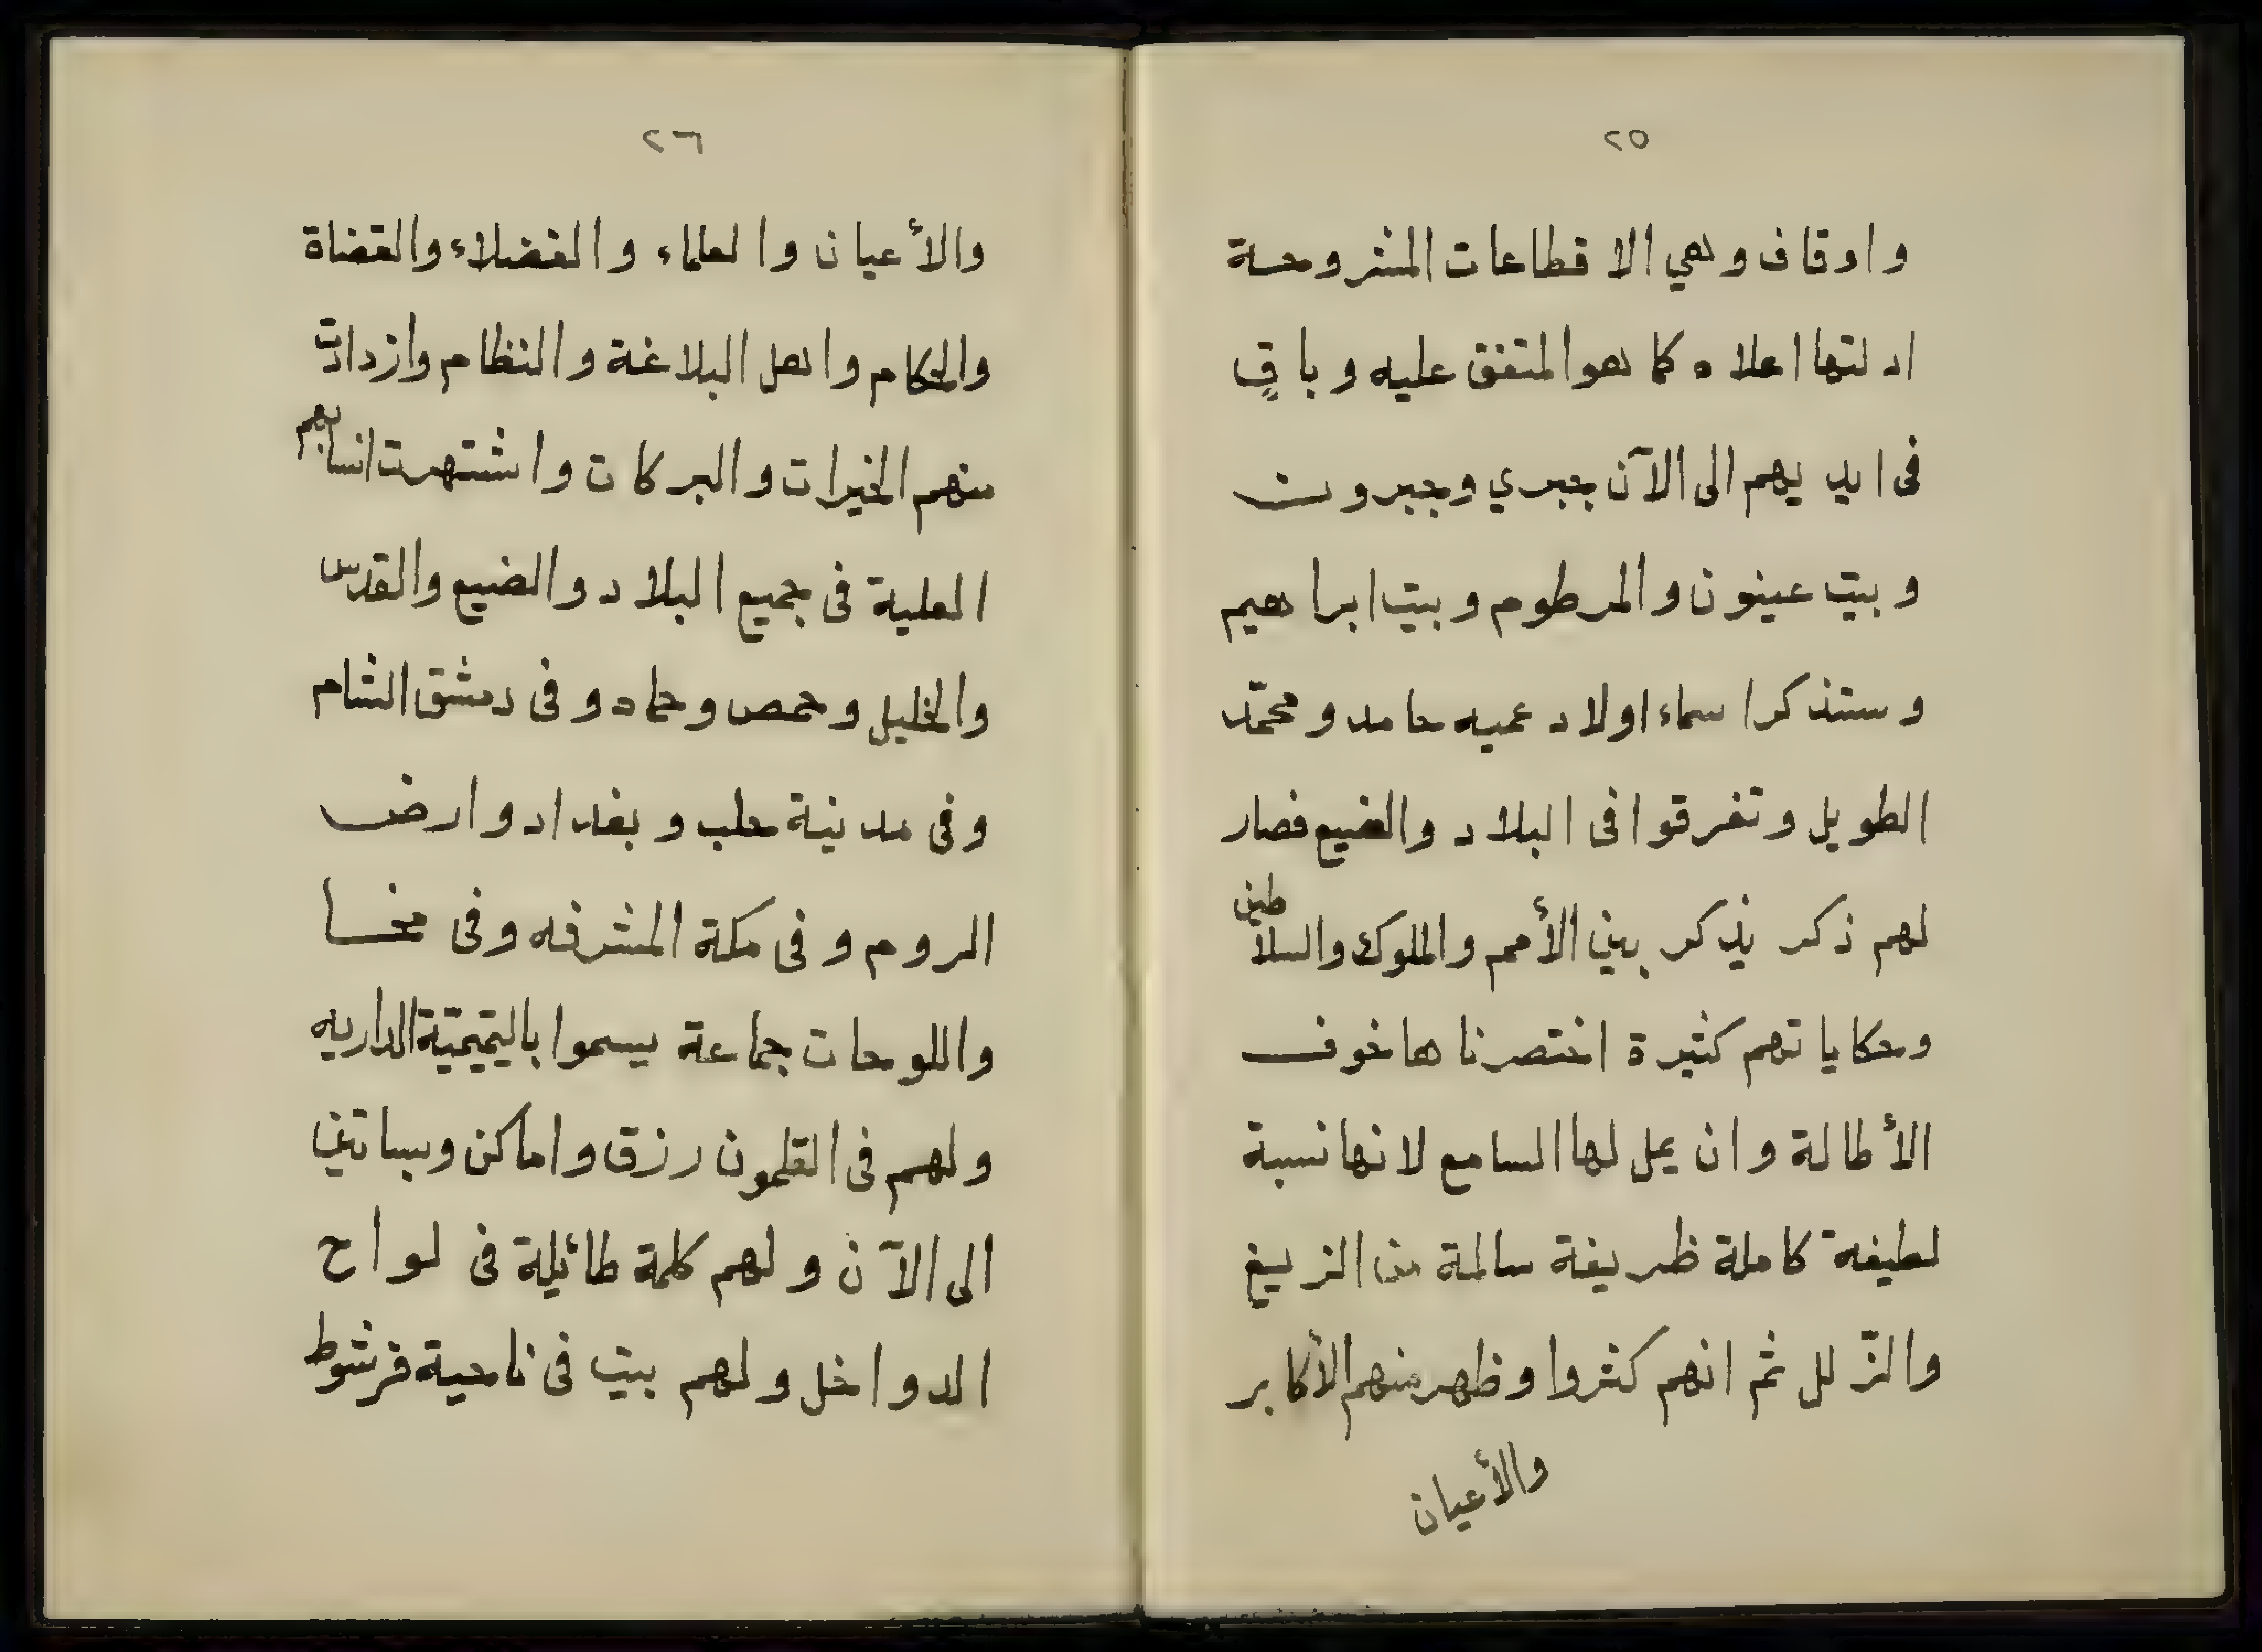 ٢٥
واوقاف وهي الاقطاعات المشروحة
ادلتها اعلاه كما هو المتفق عليه وباقٍ
فى ايديهم الى الآن بجبرى وبجبروت
وبيت عينون والمرطوم وبيت ابراهيم
وستذكر اسماء اولاد عميه حامد ومحمّد
الطويل وتفرقوا فى البلاد والضيع فصار
لهم ذكر يذكر بين الأمم والملوك والسلاطين
وحكاياتهم كثيرة اختصرناها خوف
الأطالة وان يمل لها السامع لانها نسبة
لطيفة كاملة ظريفة سالمة من الزيغ
والزّلل ثم انهم كثروا وظهر منهم الأكابر
والأعيان
٢٦
والأعيان والعلماء والفضلاء والقضاة
والحكام واهل البلاغة والنظام وازدادت
منهم الخيرات والبركات واشتهرت انسابهم
العلية فى جميع البلاد والضيع والقدس
والخليل وحمص وحماه وفى دمشق الشام
وفى مدينة حلب وبغداد وارض
الروم وفى مكة المشرفه وفى مخسا
واللوحات جماعة يسموا باليتميتية الداريه
ولهم فى القلمون رزق واماكن وبساتين
الى الآن ولهم كلمة طائيلة فى لواح
الدواخل ولهم بيت فى ناحية فرشوط